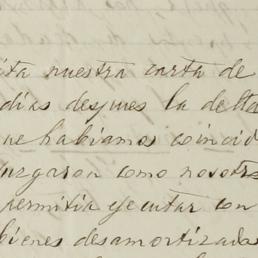 ita nuestra carta de
dias despues la de
ne habiamos coincid
uzgaron como nosotr
permitia ejecutar con
bienes desamortizados